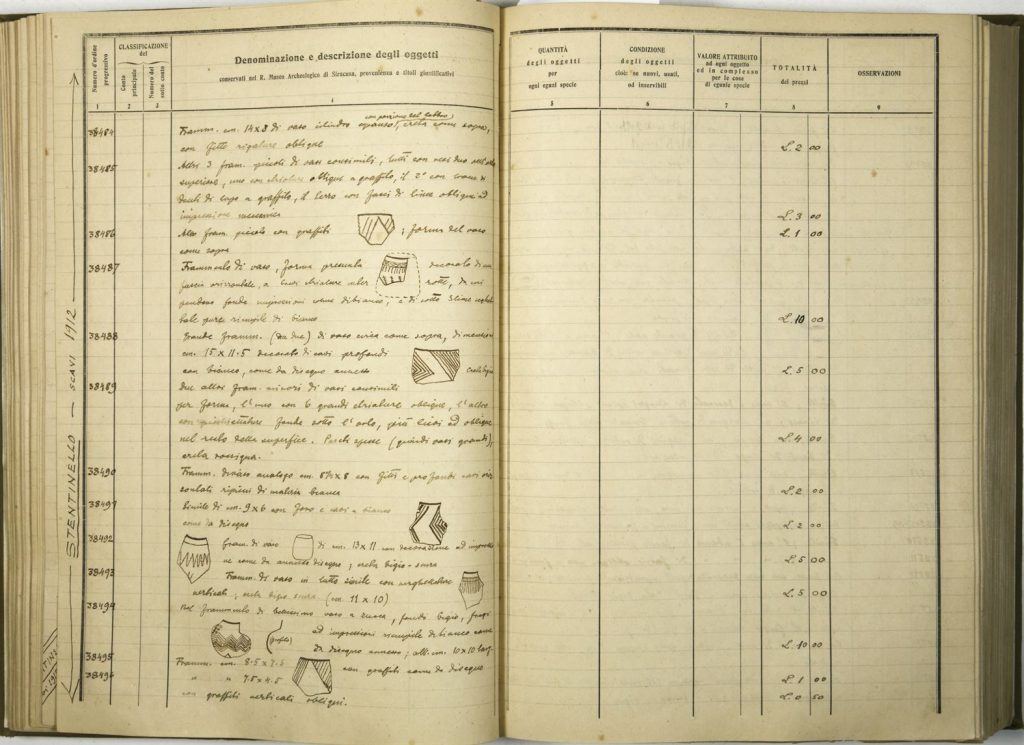 Numero d'ordine progressivo
CLASSIFICAZIONE del
Conto principale
Numero del sotto conto
Denominazione e descrizione degli oggetti
conservati nel R. Museo Archeologico di Siracusa, provenienza e titoli giustificativi
QUANTITÀ degli oggetti per ogni specie
CONDIZIONE degli oggetti cioè: se nuovi, usati, od inservibili
VALORE ATTRIBUITO ad ogni oggetto ed in complesso per le cose di eguale specie
TOTALITÀ dei prezzi
OSSERVAZIONI
1 2 3 4 5 6 7 8 9
STENTINELLO — SCAVI 1912
38484 Framm. cm. 14x8 di vaso cilindro espanso, creta come sopra,
con fitte rigature oblique L. 2 00
38485 Altri 3 fram. piccoli di vasi consimili, tutti con
superiore, uno con striature oblique a graffito, il 2° con
denti di lupo a graffito, il terzo con fasci di linee oblique ad
impressione L. 3 00
38486 Altro fram. piccolo con graffiti ; forma del vaso L. 1 00
come sopra
38487 Frammento di vaso, forma presunta decorato di una
fascia orizzontale, a
pendono fonde impressioni di bianco; e di sotto 3 linee
pure riempite di bianco L. 10 00
38488 Grande framm. (da due) di vaso come sopra, dimensioni
cm. 15 x 11.5 decorato di cavi profondi
con bianco, come da disegno annesso creta bigia L. 5 00
38489 due altri fram. minori di vasi consimili
per forma, l'uno con 6 grandi striature oblique, l'altro
con fonde sotto l'orlo, più lievi ed oblique
nel resto della superficie. Pareti spesse (quindi vasi grandi), L. 4 00
creta rossigna.
38490 Framm. di vaso analogo cm. 8½ x 8 con fitti e profondi cavi oriz
zontali ripieni di materia bianca L. 2 00
38491 Simile di cm. 9 x 6 con foro e cavi a bianco
come da disegno L. 2 00
38492 fram. di vaso di cm. 13 x 11 con decorazione ad impressio
ne come da annesso disegno; creta bigio-scura L. 5 00
38493 Framm. di vaso in tutto simile con unghiettature
verticali; creta bigio scura (cm. 11 x 10) L. 5 00
38494 Bel frammento di bellissimo vaso a zucca, fondo bigio, fregi
(profilo) ad impressioni riempite di bianco come
da disegno annesso; alt. cm. 10 x 10 larg. L. 10 00
38495 Framm. cm. 8.5 x 7.5 con graffiti come da disegno L. 1 00
38496 " " 7.5 x 4.5
con graffiti verticali obliqui. L. 0 50